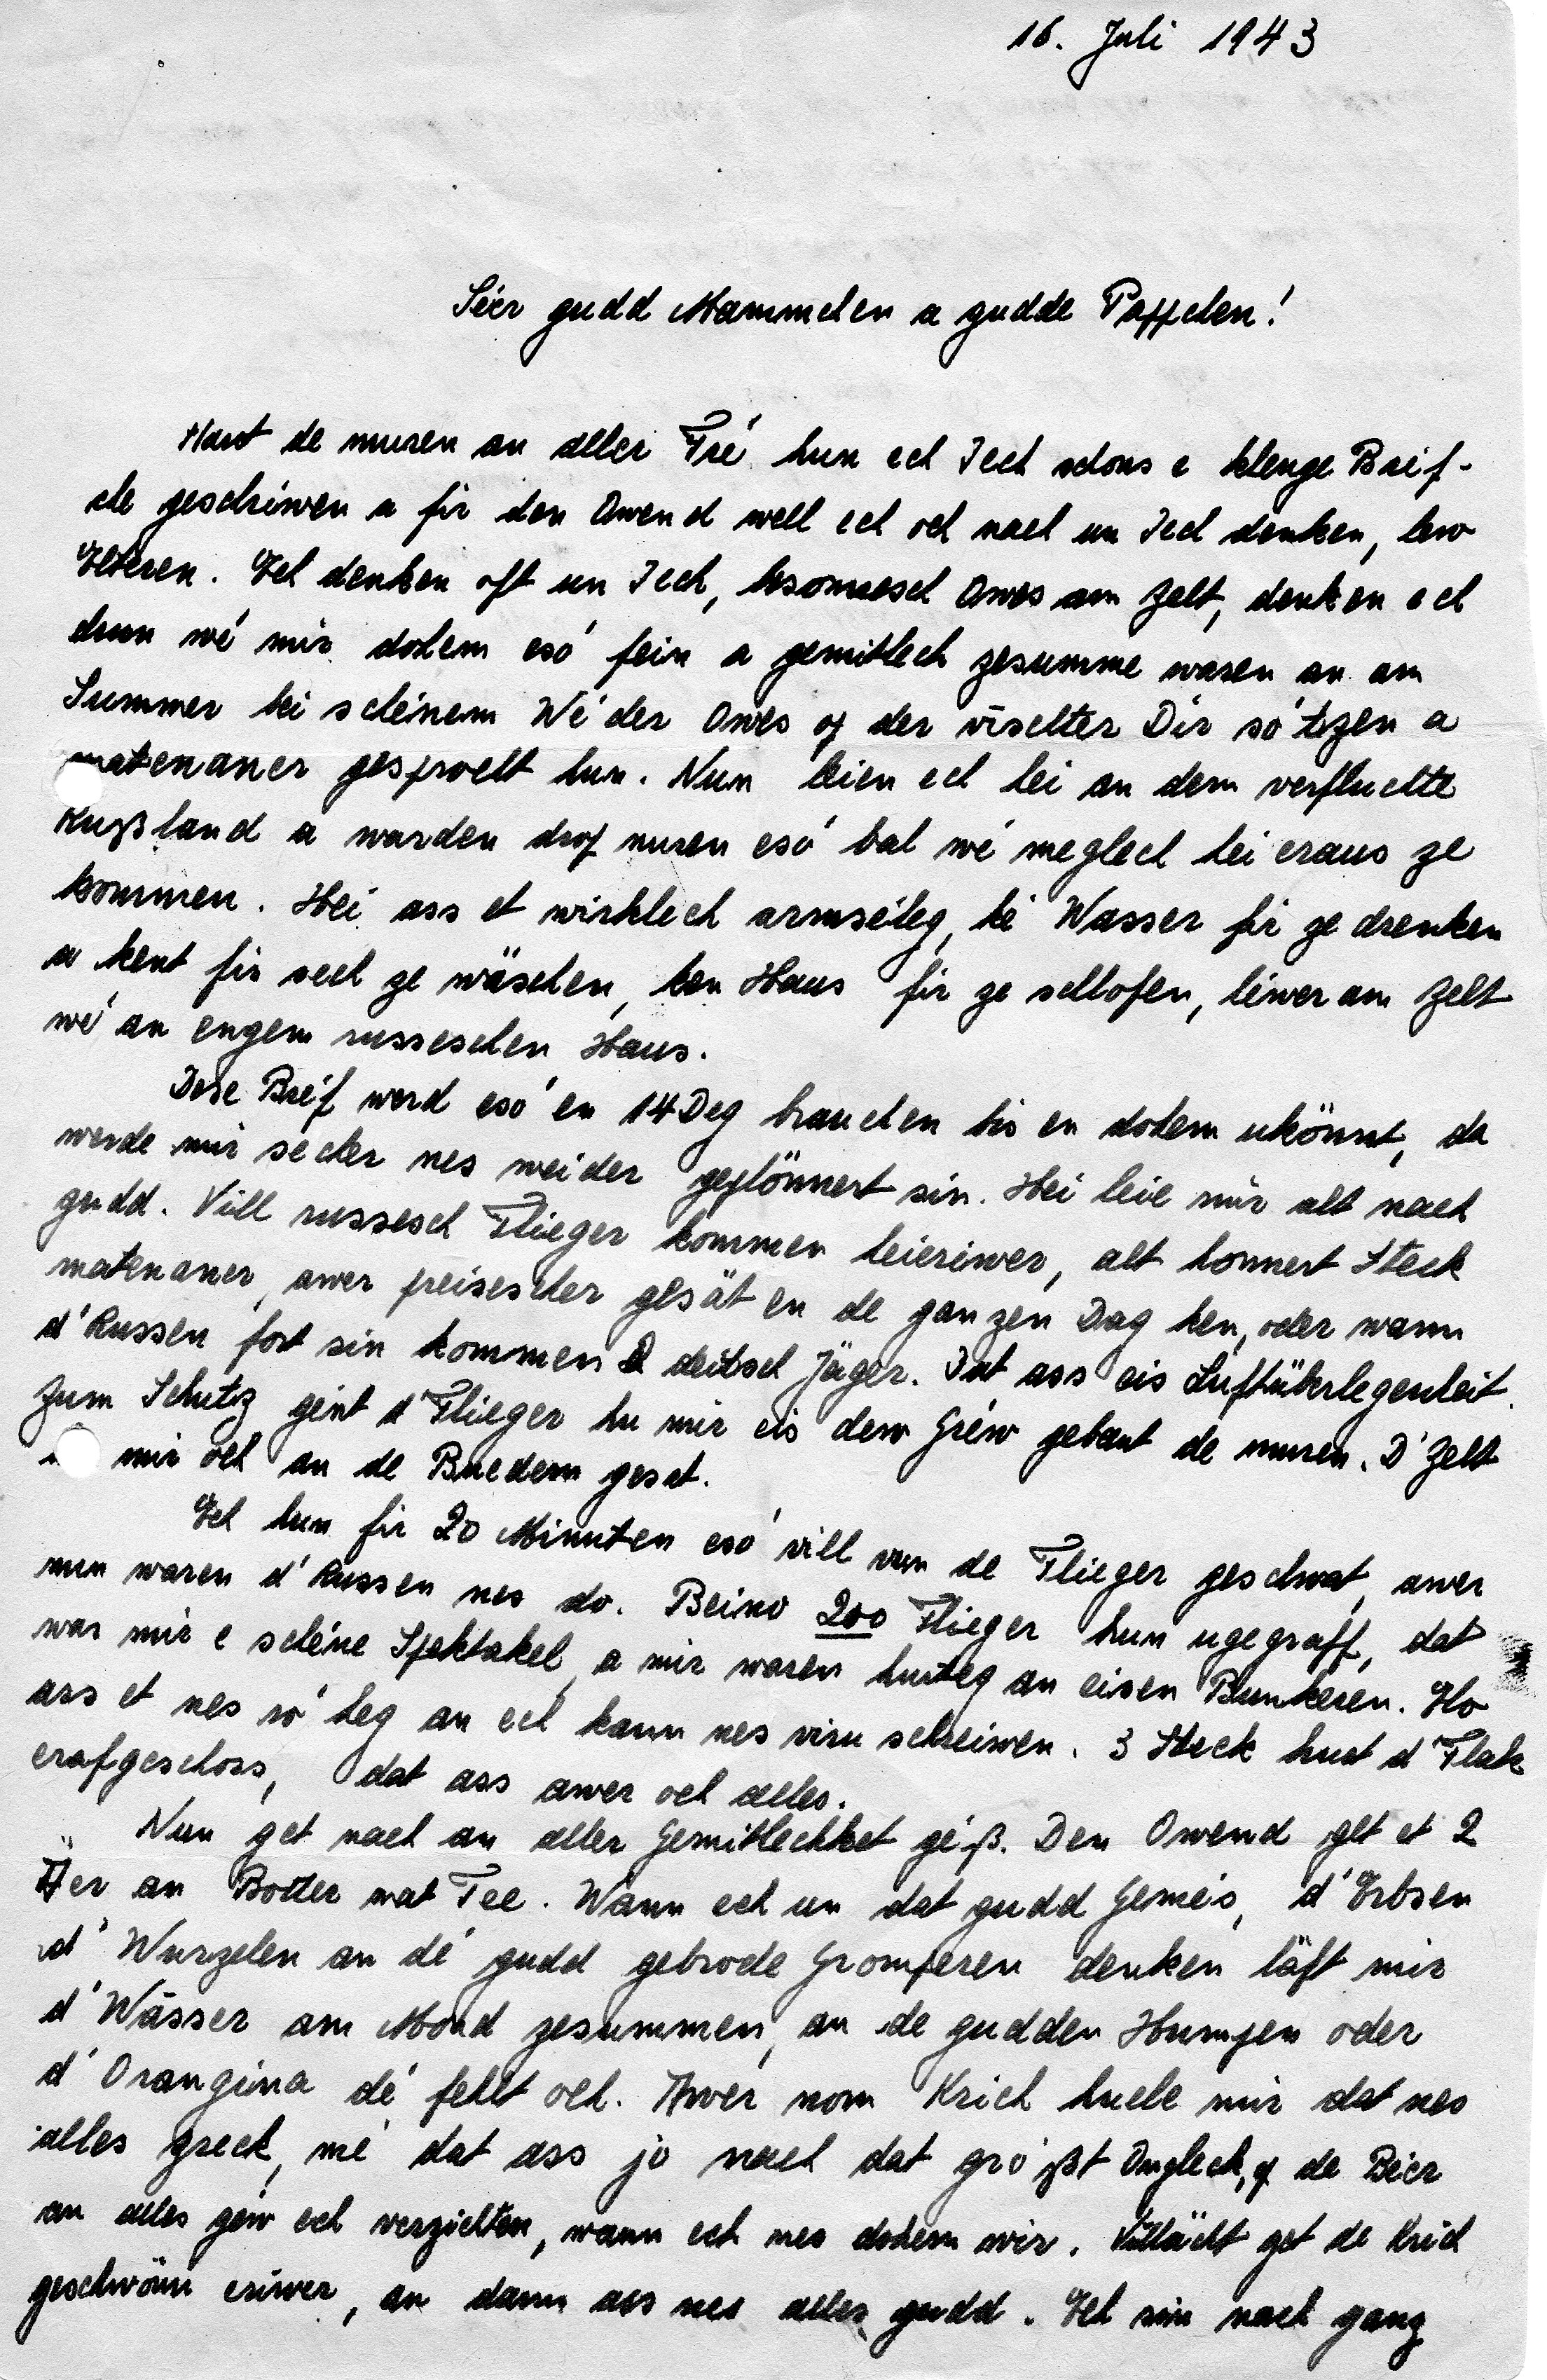 16. Juli 1943
Séer gudd Mammchen a gudde Pappchen!
Haut de muren an aller Fré hun ech Iech schons e klenge Breif-
che geschriwen a fir den Owend well ech och nach un Iech denken, lew
Elteren. Ech denken oft un Iech, besonnesch Owes am Zelt, denken ech
drun wé mir dohem esó fein a gemitlech zesumme waren an am
Summer bei schéinem Wéder Owes op der viischter Dir sótzen a
matenaner gesprocht hun. Nun leien ech hei an dem verfluchte
Rußland a warden drop muren esó bal wé meglech hei eraus ze
kommen. Hei ass et wirklech armséileg, ké Wasser fir ze drenken
a kent fir sech ze wäschen, ken Haus fir ze schlofen, léiwer am Zelt
wé an engem russeschen Haus.
Dese Bréf werd esó en 14 Deg brauchen bis en dohem ukönnt, da
werde mir secher nes weider geplönnert sin. Hei leie mir alt nach
gudd. Vill russesch Flieger kommen heieriwer, alt honnert Steck
matenaner, awer preisescher gesät en de ganzen Dag ken, oder wann
d'Russen fort sin kommen 2 deitsch Jäger. Dat ass eis Luftüberlegenheit.
Zum Schutz gént d'Flieger hu mir eis dew Gréw gebaut de muren. D'Zelt
mir och an de Buedem gesat.
Ech hun fir 20 Minuten esó vill vun de Flieger geschwat, awer
nun waren d'Russen nes do. Beino 200 Flieger hun ugegraff, dat
war mir e schéine Spektakel, a mir waren hurteg an eisen Bunkeren. Elo
ass et nes róheg an ech kann nes viru schreiwen. 3 Steck huet d'Flak
erofgeschoss, dat ass awer och alles.
Nun get nach an aller Gemitlechket giéß. Den Owend get et 2
Äer an Botter mat Tee. Wann ech un dat gudd Geméis, d'Erbsen
d'Wurzelen an dé gudd gebrode Gromperen denken läft mir
d'Wässer am Mond zesummen, an de gudden Humpen oder
d'Orangina dé fehlt och. Awer nom Krich huele mir dat nes
alles zreck, mé dat ass jo nach dat gréßt Ongleck, op de Béer
an alles géw ech verzichten, wann ech nes dohem wir. Villächt get de Krich
geschwönn eriwer, an dann ass nes alles gudd. Ech sin nach ganz